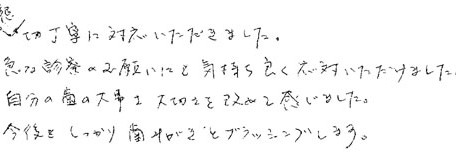 懇切丁寧に対応いただきました。
急な診察のお願いにも気持ち良く応対いただけました。
自分の歯の大事さ大切さを改めて感じました。
今後もしっかり歯みがきとブラッシングします。